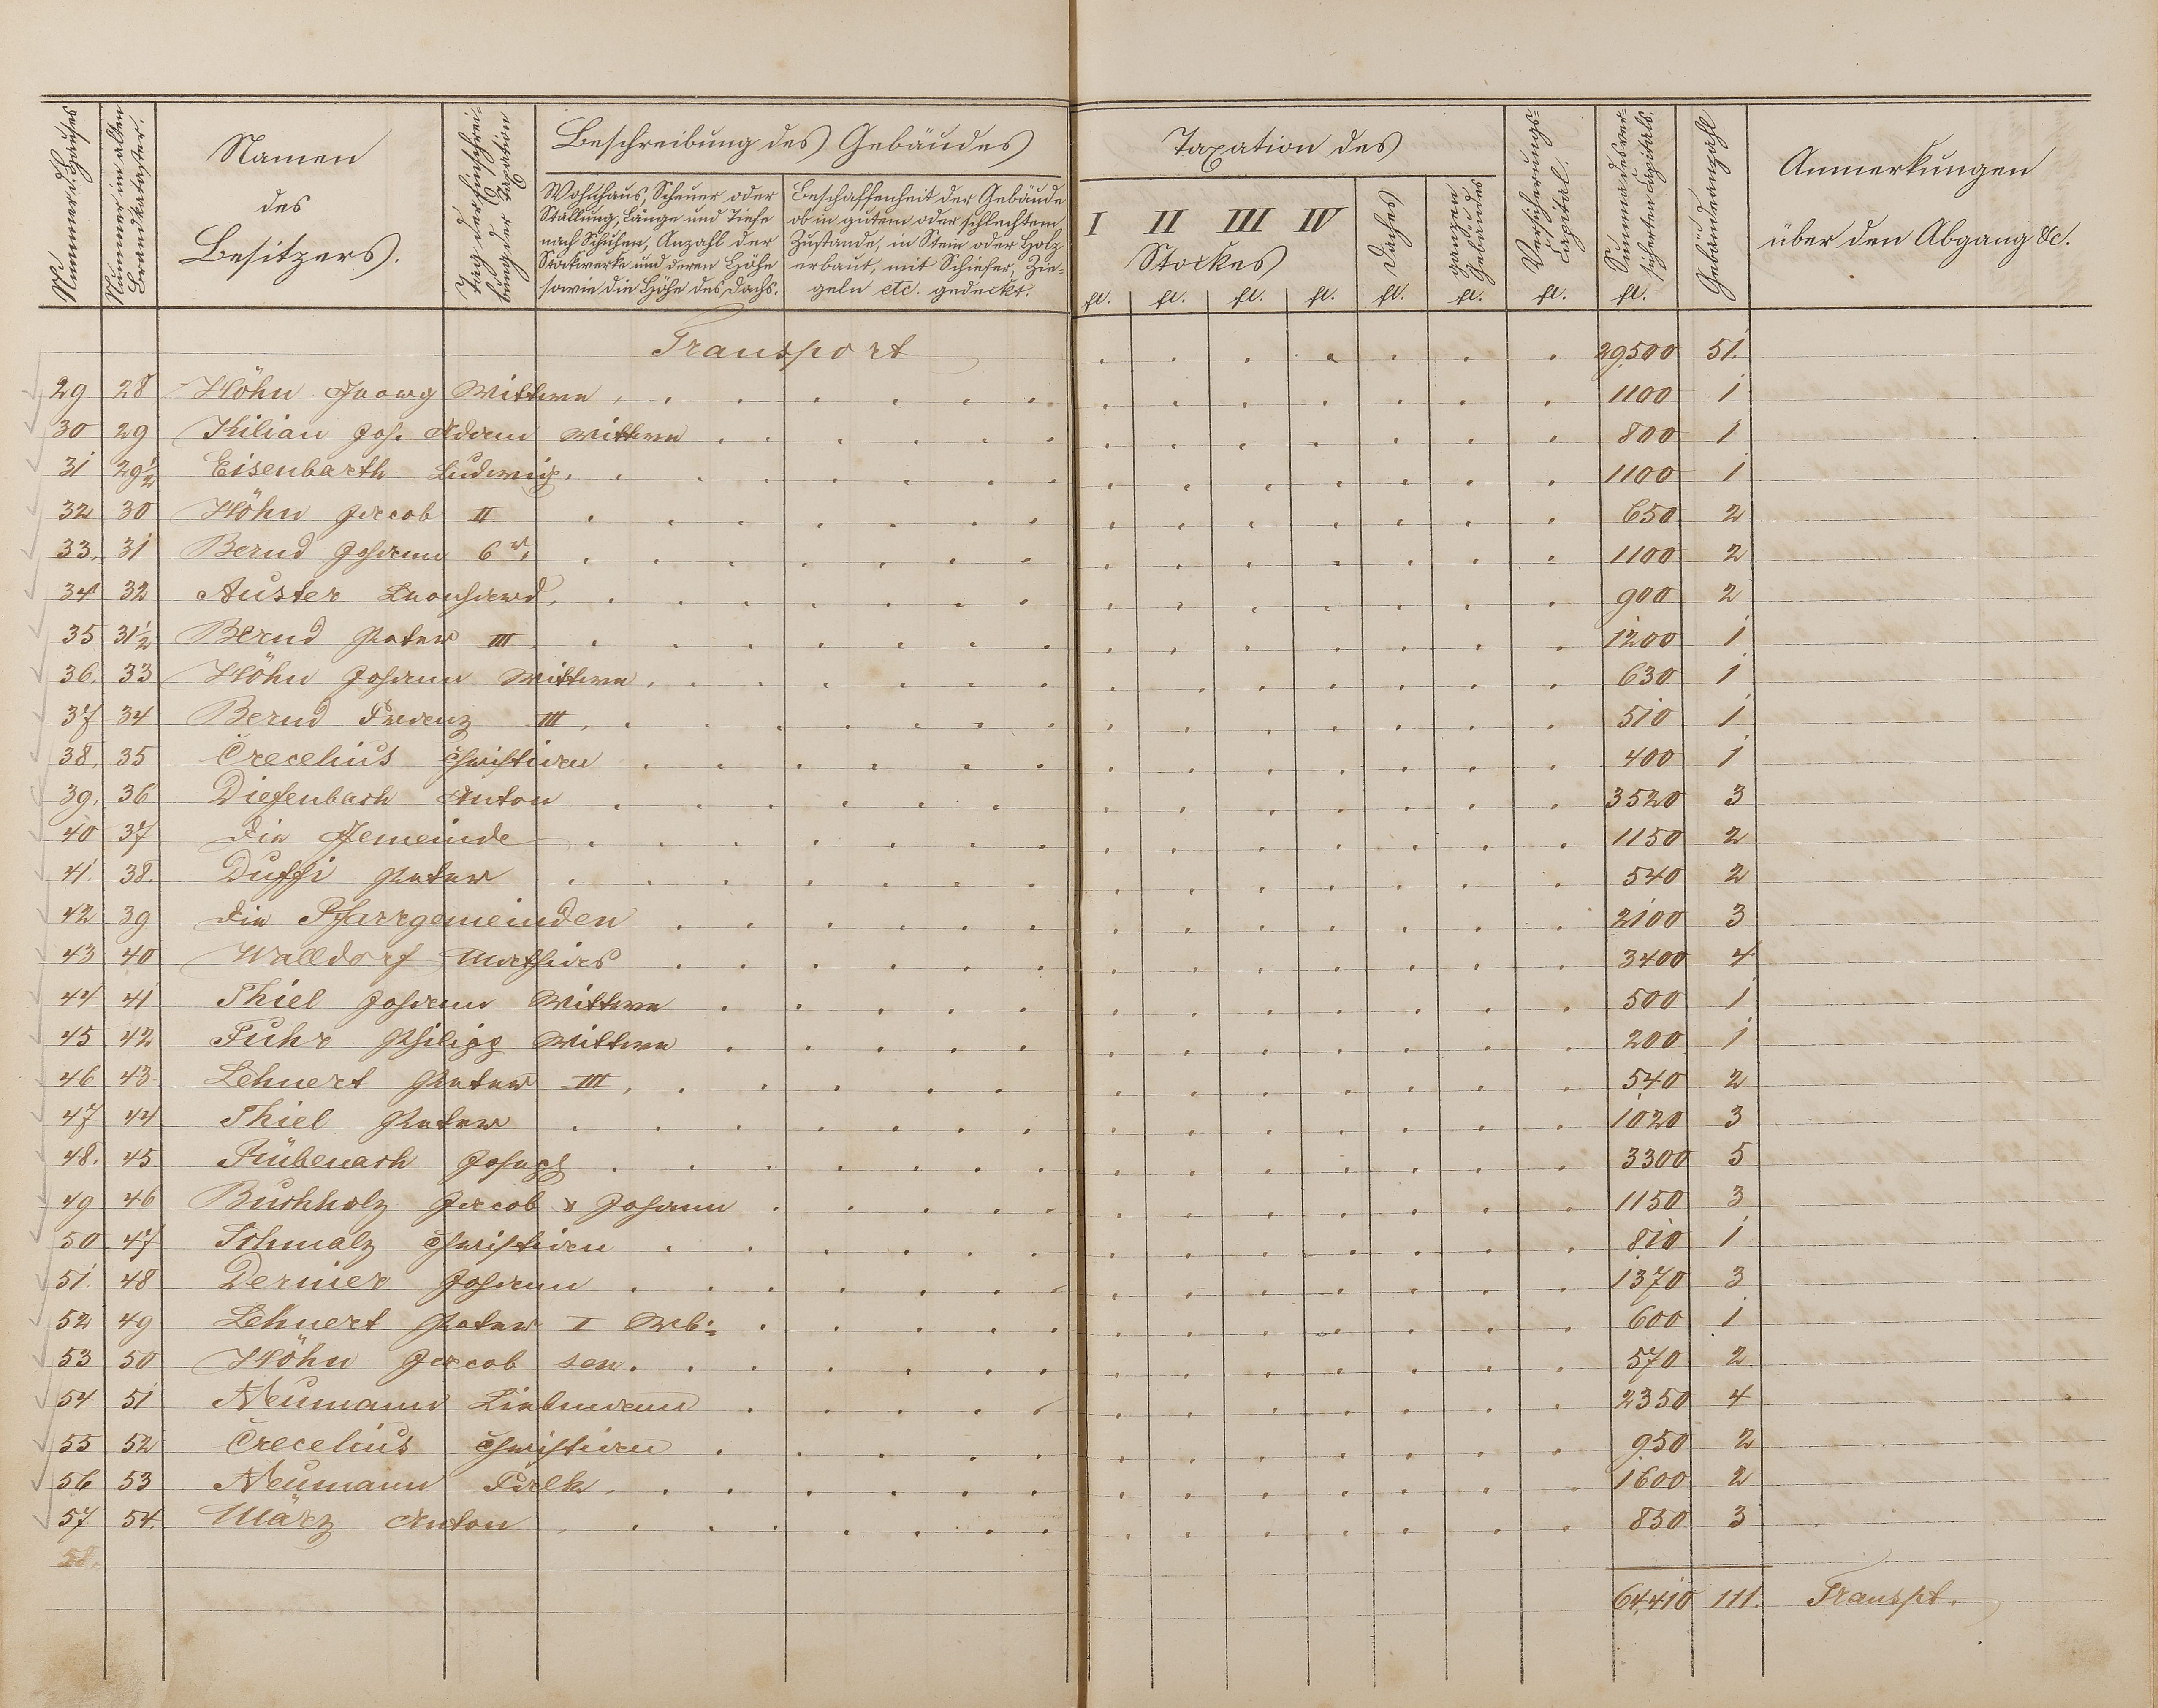 Nummer d. Hauses
Nummer im alten Brandkataster.
Namen
des
Besitzers.
Tag der Einschreibung der Taxation
Beschreibung des Gebäudes
Wohnhaus, Scheuer oder
Stallung, Länge und Tiefe
nach Schuhen, Anzahl der
Stockwerke und deren Höhe
sowie die Höhe des Dachs.
Beschaffenheit der Gebäude
ob in gutem oder schlechtem
Zustande, in Stein oder Holz
erbaut, mit Schiefer, Zie-
geln etc. gedeckt.
Taxation des
I II III IV
Stockes
Daches
ganzen Gebäudes
Versicherungs-Capital.
Summa des versicherten Capitals.
Gebäudeanzahl
Anmerkungen
über den Abgang &c.
fl. fl. fl. fl. fl. fl. fl. fl.
Transport 29,500 51.
29 28 Höhn Georg Wittwe 1100 1
30 29 Kilian Joh. Adam Wittwe 800 1
31 29½ Eisenbarth Ludwig 1100 1
32 30 Höhn Jacob II 650 2
33. 31 Bernd Johann 6r. 1100 2
34 32 Auster Leonhard 900 2
35 31½ Bernd Peter III 1200 1
36. 33 Höhn Johann Wittwe 630 1
37 34 Bernd Franz III 510 1
38. 35 Crecelius Christian 400 1
39. 36 Diefenbach Anton 3520 3
40 37 Die Gemeinde 1150 2
41. 38. Duffi Peter 540 2
42 39 Die Pfarrgemeinden 2100 3
43 40 Walldorf Mathias 3400 4
44 41 Thiel Johann Wittwe 500 1
45 42 Fuhr Philipp Wittwe 200 1
46 43 Lehnert Peter III 540 2
47 44 Thiel Peter 1020 3
48. 45 Rübenach Joseph 3300 5
49 46 Buchholz Jacob & Johann 1150 3
50 47 Schmalz Christian 810 1
51. 48 Dernier Johann 1370 3
52 49 Lehnert Peter I Wb: 600 1
53 50 Höhn Jacob sen. 570 2
54 51 Neumann Liebmann 2350 4
55 52 Crecelius Christian 950 2
56 53 Neumann Falk 1600 2
57 54. März Anton 850 3
58.
64,410 111. Transpt.